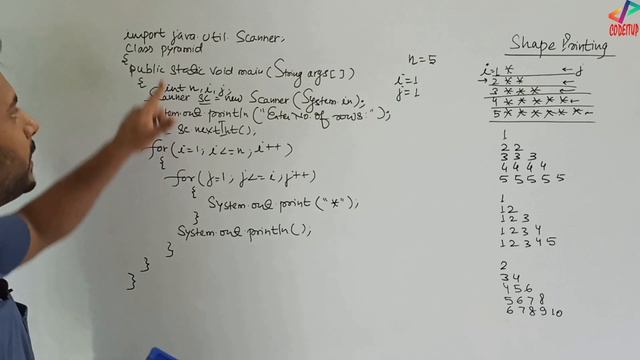 import java util. Scanner;
class pyramid
{
public static void main (String args[])
{ int n, i, j;
Scanner sc = new Scanner (System in);
tem.out println ("Enter No. of rows:");
sc nextInt();
for (i=1, i<=n, i++
{
for (j=1, j<=i, j++
{
System.out print ("*");
}
System.out println();
}
}
}
n=5
i=1
j=1
CODEITUP
Shape Printing
i=1 * ← j
→ 2 * * ←
3 * * * ←
4 * * * * ←
5 * * * * * ←
1
2 2
3 3 3
4 4 4 4
5 5 5 5 5
1
1 2
1 2 3
1 2 3 4
1 2 3 4 5
2
3 4
4 5 6
5 6 7 8
6 7 8 9 10